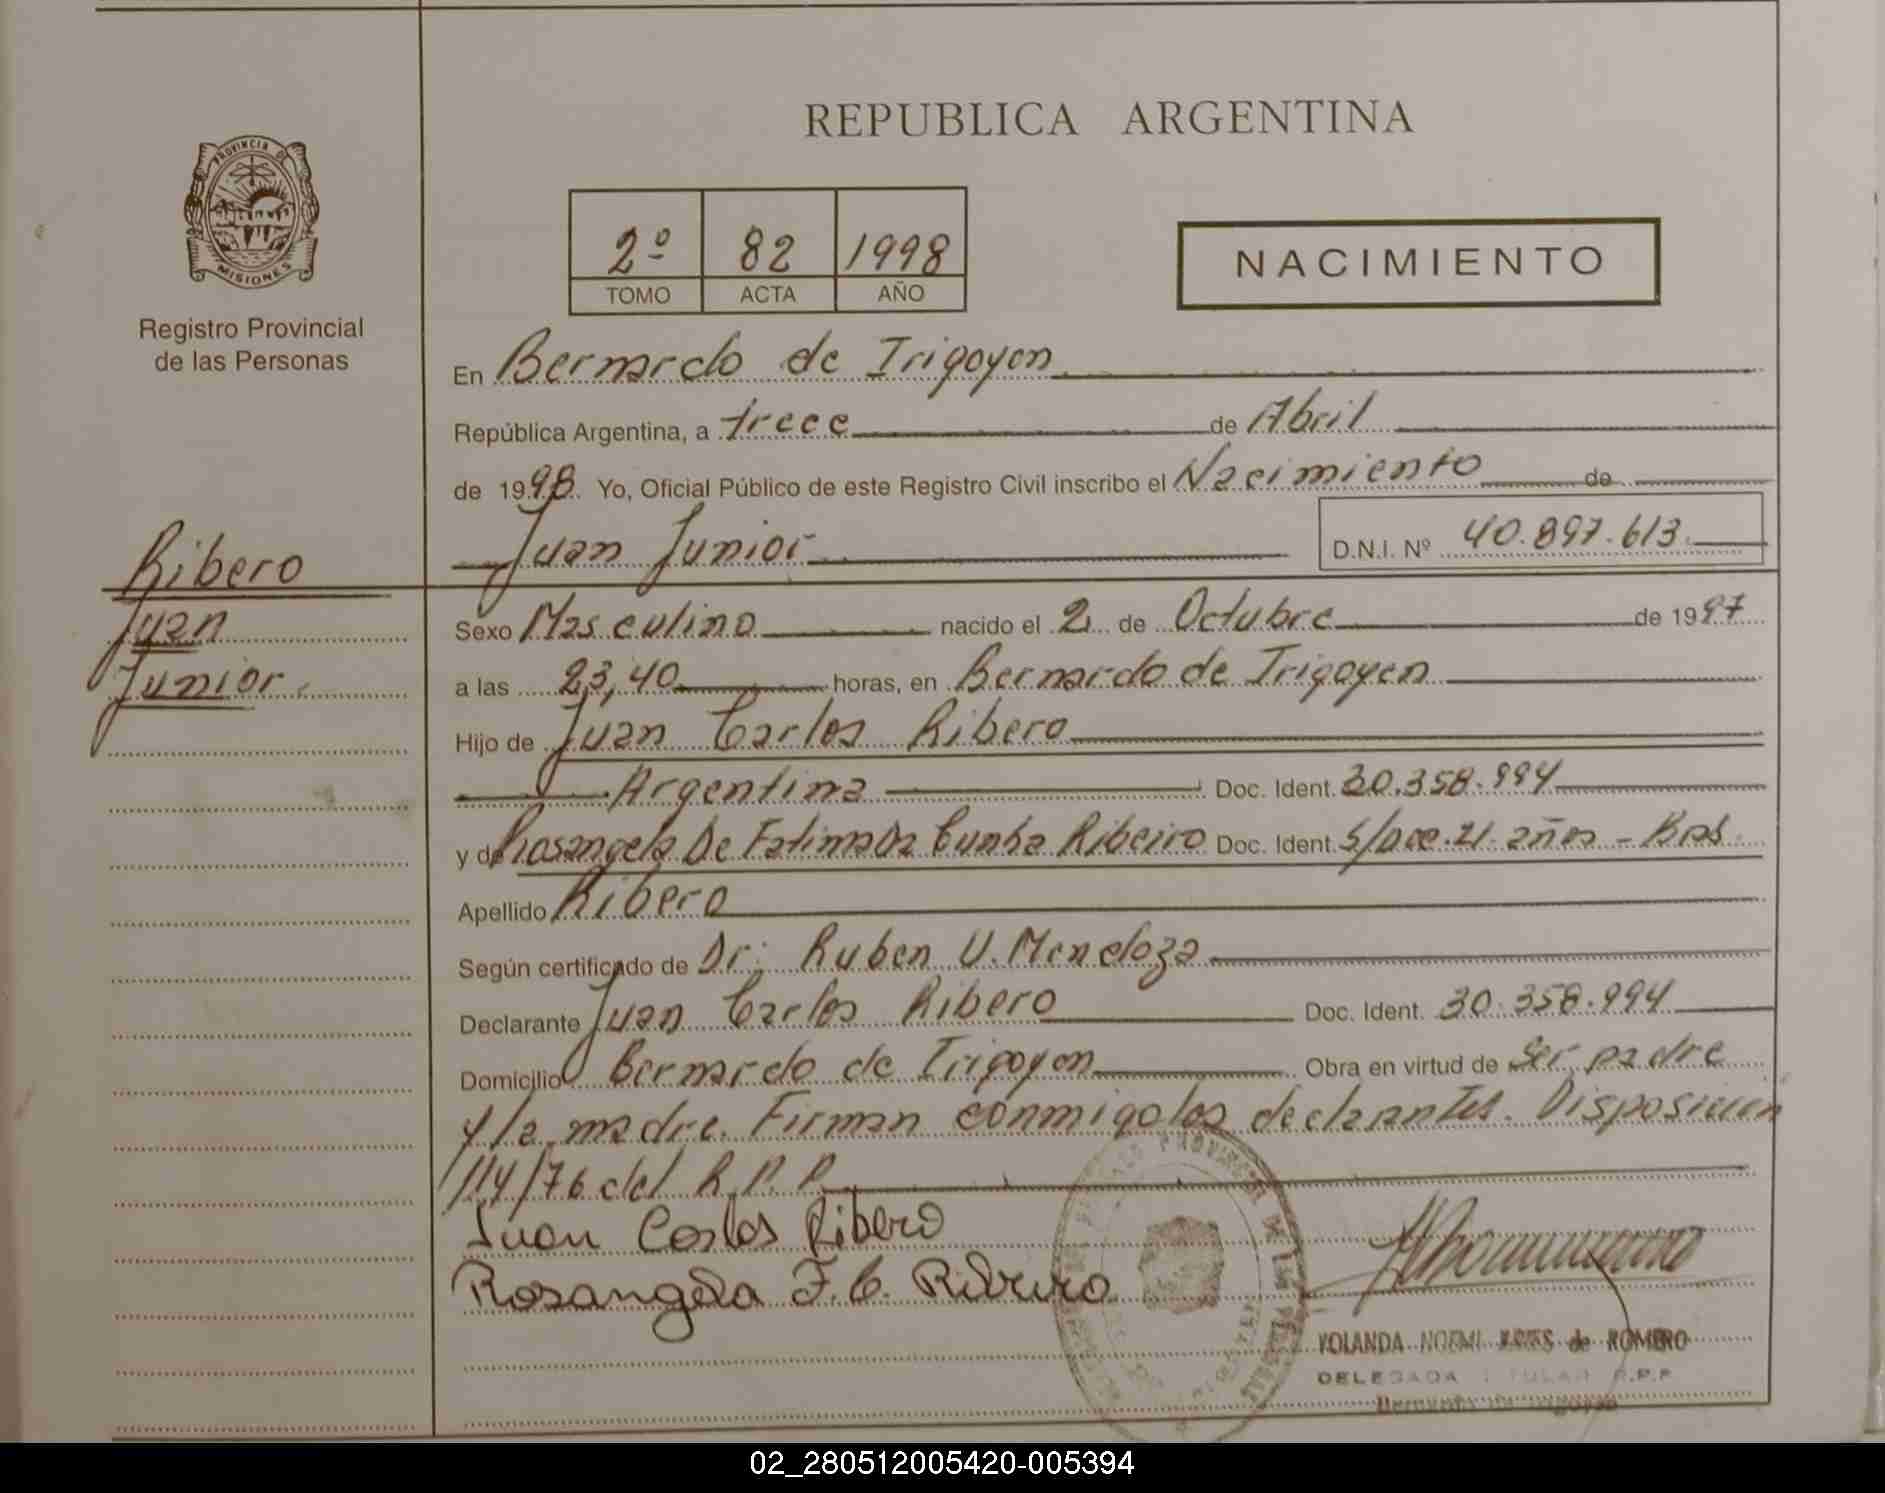 REPUBLICA ARGENTINA
PROVINCIA DE
MISIONES
Registro Provincial
de las Personas
2º 82 1998
TOMO ACTA AÑO
NACIMIENTO
En Bernardo de Irigoyen
República Argentina, a trece de Abril
de 1998. Yo, Oficial Público de este Registro Civil inscribo el Nacimiento de
Juan Junior D.N.I. Nº 40.897.613
Ribero
Juan
Junior
Sexo Masculino nacido el 2 de Octubre de 1997
a las 23,40 horas, en Bernardo de Irigoyen
Hijo de Juan Carlos Ribero
Argentina Doc. Ident. 30.358.994
y de Rosangela De Fatima Da Cunha Ribeiro Doc. Ident. S/Doc. 21 años - Bras.
Apellido Ribero
Según certificado de Dr. Ruben U. Mendoza
Declarante Juan Carlos Ribero Doc. Ident. 30.358.994
Domicilio Bernardo de Irigoyen Obra en virtud de Ser padre
y la madre. Firman conmigo los declarantes. Disposicion
114/76 del R.P.P.
Juan Carlos Ribero
Rosangela F. C. Ribeiro
YOLANDA NOEMI de ROMERO
DELEGADA TITULAR R.P.P.
Bernardo de Irigoyen
02_280512005420-005394